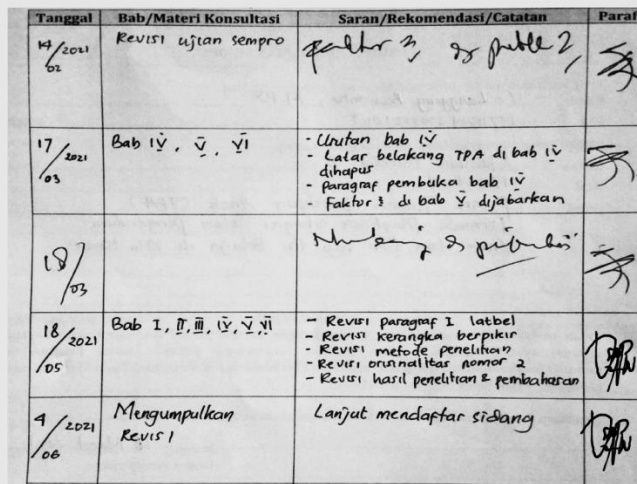 Tanggal
Bab/Materi Konsultasi
Saran/Rekomendasi/Catatan
Paraf
14/2021
02
Revisi ujian sempro
17/2021
03
Bab IV, V, VI
- Urutan bab IV
- Latar belakang TPA di bab IV
dihapus
- paragraf pembuka bab IV
- Faktor3 di bab V dijabarkan
18/
03
18/2021
05
Bab I, II, III, IV, V, VI
- Revisi paragraf I latbel
- Revisi kerangka berpikir
- Revisi metode penelitian
- Revisi orisinalitas nomor 2
- Revisi hasil penelitian & pembahasan
4/2021
06
Mengumpulkan
Revisi
Lanjut mendaftar sidang